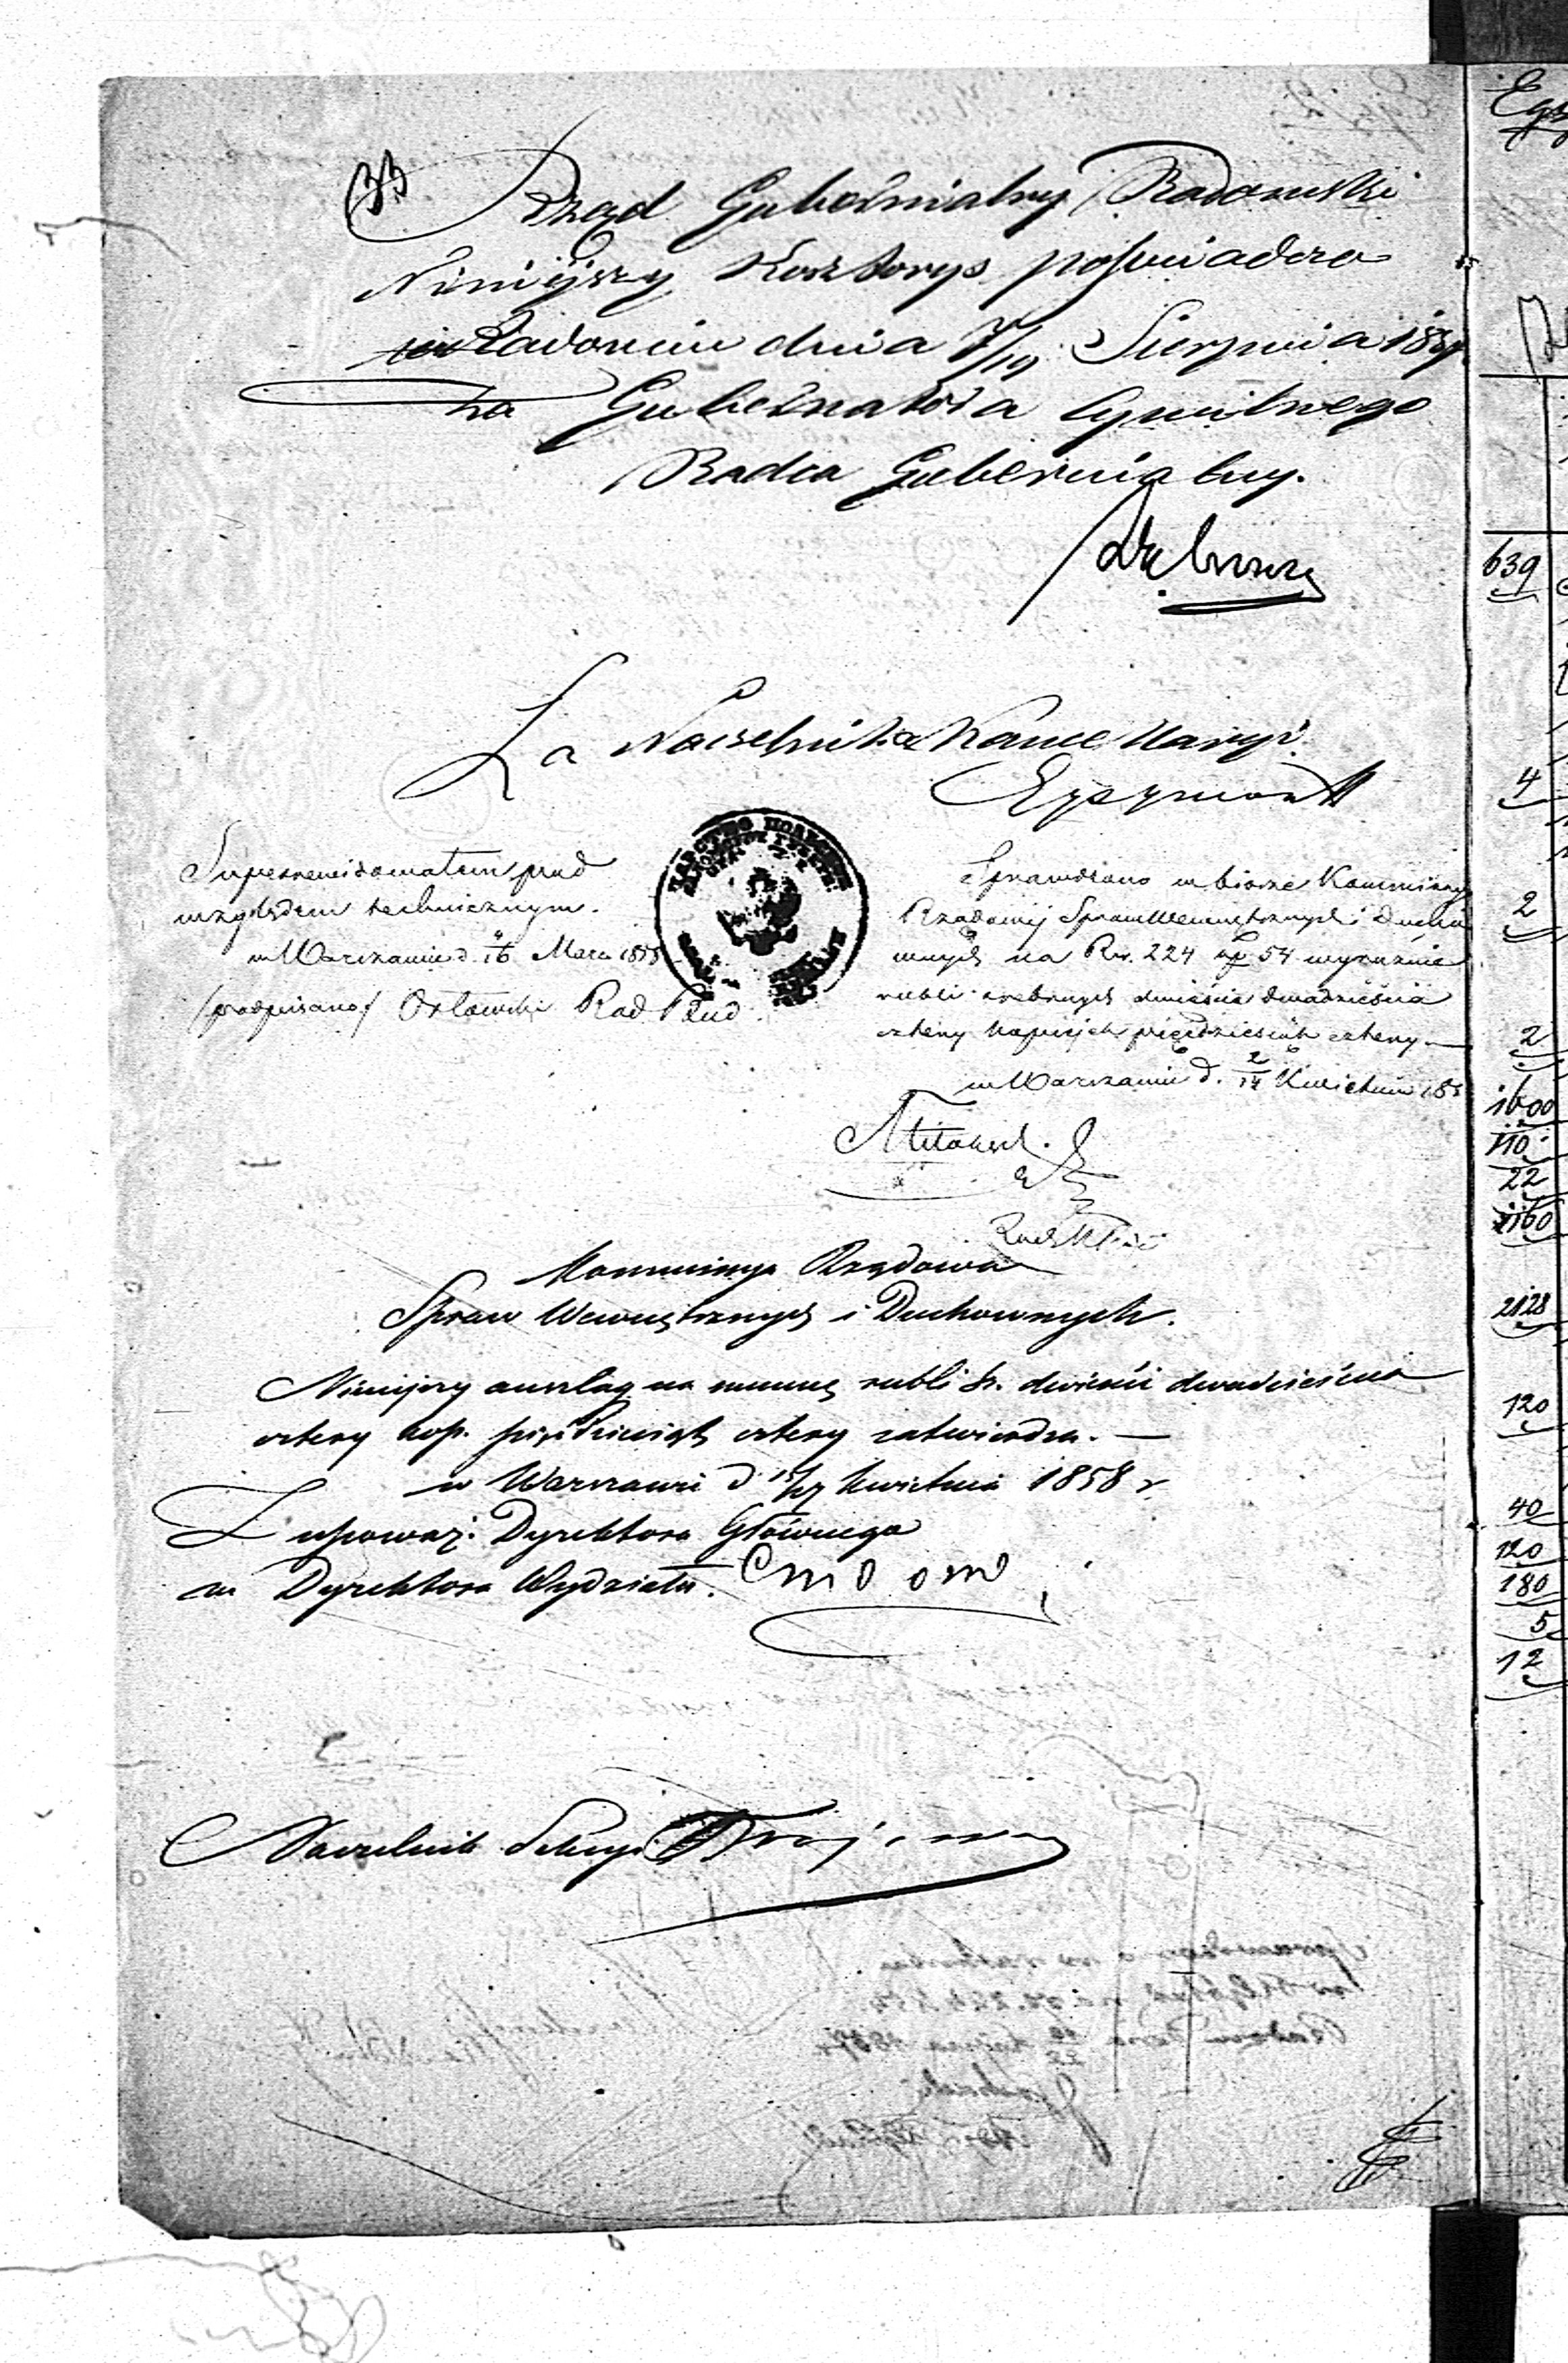 33
Rząd Gubernialny Radomski
Niniejszy kosztorys poświadcza
w Radomiu dnia 7/19 Sierpnia 185
za Gubernatora Cywilnego
Radca Gubernialny.
Za Naczelnika Kancellaryi
ЦАРСТВО ПОЛЬСКОЕ
Superrewidowałem pod
względem technicznym.
w Warszawie d. 4/16 Marca 1858
/podpisano/ Orłowski Rad. Bud.
Sprawdzono w biórze Kommissyi
Rządowej Spraw Wewnętrznych i Ducho
wnych na Rs. 224 kp 54 wyraźnie
rubli srebrnych dwieście dwadzieścia
cztery kopiejek pięćdziesiąt cztery.—
w Warszawie d. 2/14 Kwietnia 185
Kommissya Rządowa
Spraw Wewnętrznych i Duchownych.
Niniejszy anszlag na summę rubli sr. dwieście dwadzieścia
cztery kop. pięćdziesiąt cztery zatwierdza.—
w Warszawie d 15/27 Kwietnia 1858 r.
Z upoważ. Dyrektora Głównego
w Dyrektora Wydziału.
Naczelnik Sekcyi
639
4
2
2
1600
110
22
1160
2128
120
40
120
180
5
12